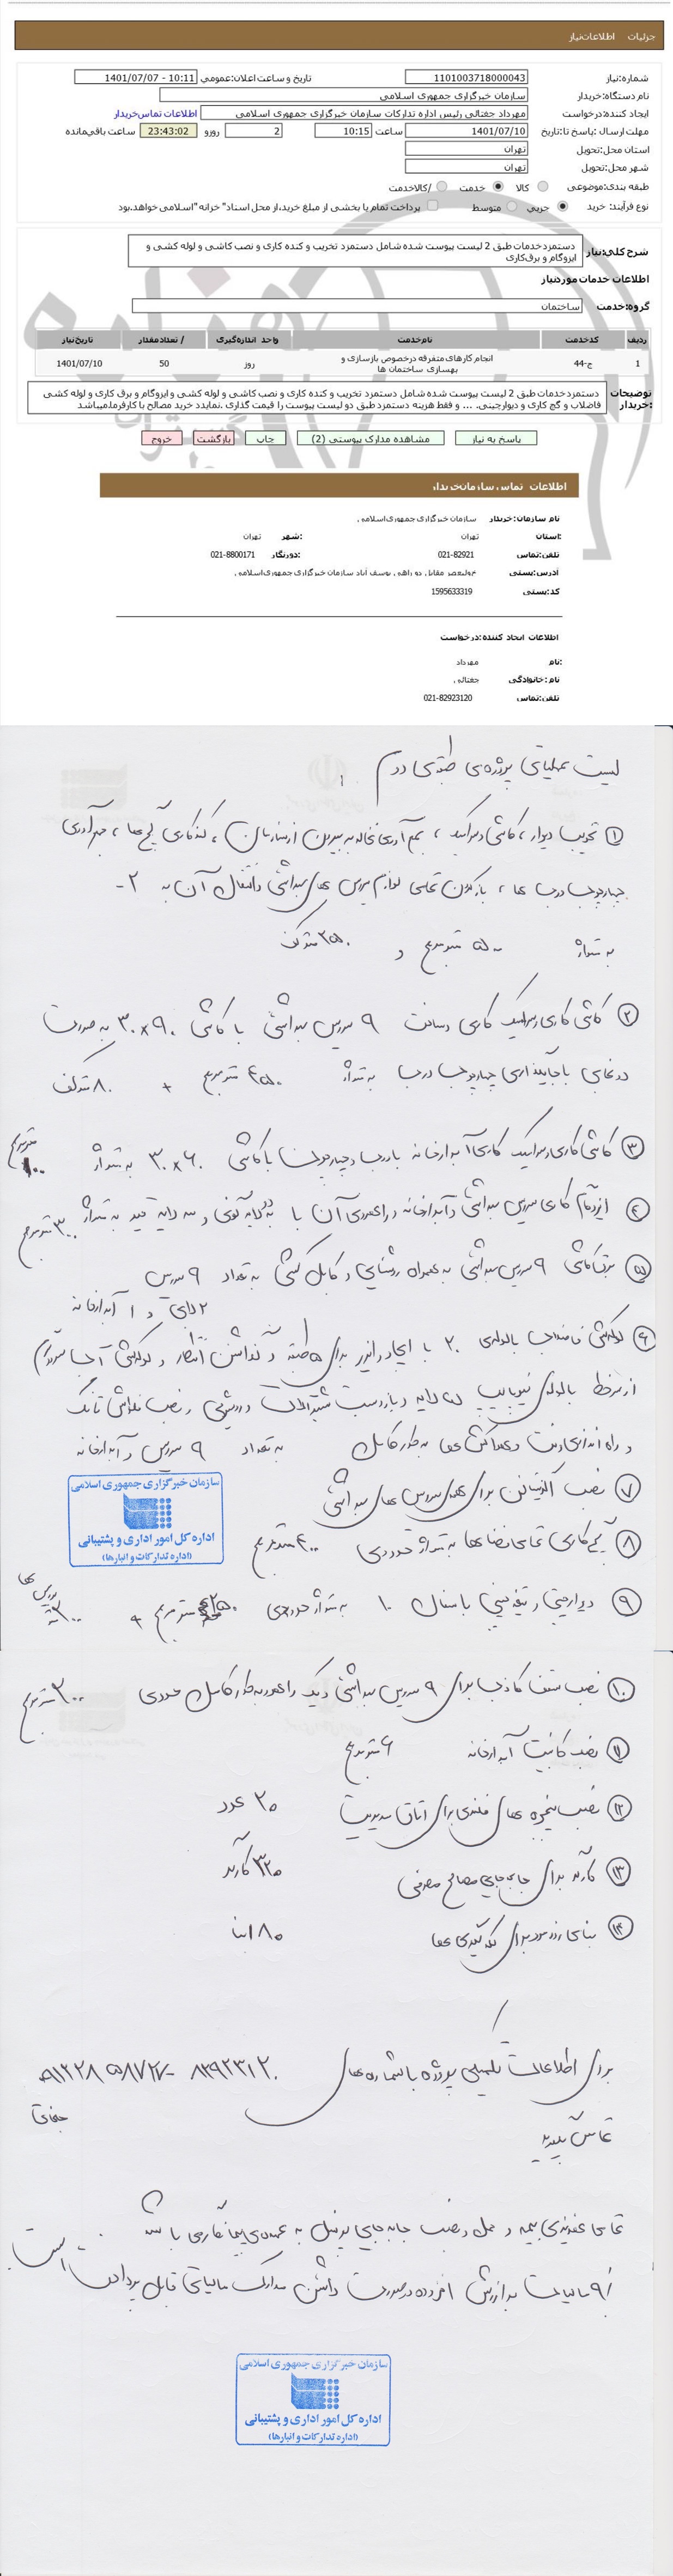 جزئیات اطلاعات نیاز
شماره نیاز: 1101003718000043
تاریخ و ساعت اعلان عمومی: 1401/07/07 - 10:11
نام دستگاه خریدار: سازمان خبرگزاری جمهوری اسلامی
ایجاد کننده درخواست: مهرداد جغتائی رئیس اداره تدارکات سازمان خبرگزاری جمهوری اسلامی اطلاعات تماس خریدار
مهلت ارسال پاسخ تا: تاریخ 1401/07/10 ساعت 10:15 2 روزو 23:43:02 ساعت باقی‌مانده
استان محل تحویل: تهران
شهر محل تحویل: تهران
طبقه بندی موضوعی: کالا خدمت کالا/خدمت
نوع فرآیند خرید: جزیی متوسط پرداخت تمام یا بخشی از مبلغ خرید،از محل اسناد "خزانه اسلامی" خواهد بود.
شرح کلی نیاز: دستمزدخدمات طبق 2 لیست پیوست شده شامل دستمزد تخریب و کنده کاری و نصب کاشی و لوله کشی و
ایزوگام و برق‌کاری
اطلاعات خدمات مورد نیاز
گروه خدمت: ساختمان
ردیف کد خدمت نام خدمت واحد اندازه‌گیری تعداد / مقدار تاریخ نیاز
1 ج-44 انجام کارهای متفرقه درخصوص بازسازی و بهسازی ساختمان ها روز 50 1401/07/10
توضیحات خریدار: دستمزدخدمات طبق 2 لیست پیوست شده شامل دستمزد تخریب و کنده کاری و نصب کاشی و لوله کشی و ایزوگام و برق کاری و لوله کشی
فاضلاب و گچ کاری و دیوارچینی. ... و فقط هزینه دستمزد طبق دو لیست پیوست را قیمت گذاری .نمایند خرید مصالح با کارفرما.میباشد
پاسخ به نیاز مشاهده مدارک پیوستی (2) چاپ بازگشت خروج
اطلاعات تماس سازمان خریدار
نام سازمان خریدار: سازمان خبرگزاری جمهوری اسلامی
استان: تهران شهر: تهران
تلفن تماس: 021-82921 دورنگار: 021-8800171
آدرس پستی: خ ولیعصر مقابل دو راهی یوسف آباد سازمان خبرگزاری جمهوری اسلامی
کد پستی: 1595633319
اطلاعات ایجاد کننده درخواست:
نام: مهرداد
نام خانوادگی: جغتائی
تلفن تماس: 021-82923120
لیست عملیاتی پروژه‌ی طبقه‌ی دوم
① تخریب دیوار، کاشی و سرامیک، جمع آوری نخاله به بیرون از سازمان، کنده کاری گچ ها، جمع آوری
چهارچوب درب ها، باز کردن تمامی لوازم سرویس های بهداشتی و انتقال آن به ۲-
به متراژ ۵۰۰ متر مربع و ۲۵۰ متر کف
② کاشی کاری و سرامیک کاری و ساخت ۹ سرویس بهداشتی با کاشی ۹۰×۳۰ به صورت
دونمایی با جایگذاری چهارچوب درب به متراژ ۴۵۰ متر مربع + ۸۰ متر کف
③ کاشی کاری و سرامیک کاری آبدارخانه با درب و چهارچوب با کاشی ۶۰×۳۰ به متراژ ۱۰۰ متر مربع
④ ایزوگام کاری سرویس بهداشتی و آبدارخانه و راهروی آن با دو لایه گونی و سه لایه قیر به متراژ ۳۰۰ متر مربع
⑤ برق کشی ۹ سرویس بهداشتی به همراه روشنایی و کابل کشی به تعداد ۹ سرویس
و ۱ آبدارخانه
⑥ لوله کشی فاضلاب با لوله‌ی ۲۰ با ایجاد رایزر برای ۵ طبقه و گذاشتن انتظار و لوله کشی آب سرد و گرم
از سر خط با لوله‌ی نیوپایپ ۵ لایه و با زدن بست شیرآلات و روشویی و نصب فلاش تانک
و راه اندازی توالت و هواکش ها به طور کامل به تعداد ۹ سرویس و آبدارخانه
سازمان خبرگزاری جمهوری اسلامی
اداره کل امور اداری و پشتیبانی
(اداره تدارکات و انبارها)
⑦ نصب برای های سرویس های بهداشتی
⑧ گچ کاری تمامی فضاها به متراژ حدودی ۴۰۰ متر مربع
⑨ دیوارچینی و تیغه چینی با سفال ۱۰ به متراژ حدودی ۲۵۰ متر مربع + ۳۰۰
⑩ نصب سقف کاذب برای ۹ سرویس بهداشتی و یک راهرو به طور کامل حدودی ۳۰۰ متر مربع
⑪ نصب کابینت آبدارخانه ۶ متر مربع
⑫ نصب پنجره های فلزی برای اتاق مدیریت ۲۰ عدد
⑬ کارگر برای جابه جایی مصالح مصرفی ۳۲۰ کارگر
⑭ بنای روزمزد برای لکه گیری ها ۸۰ بنا
برای اطلاعات تکمیلی پروژه با شماره های ۸۲۹۲۳۱۲۰ - ۰۹۱۲۲۸۵۸۷۲۷
جغتایی
تماس بگیرید
تمامی هزینه‌ی بیمه و حمل و نصب جابه جایی پرسنل به عهده‌ی پیمانکار می باشد
۹٪ مالیات بر ارزش افزوده در صورت داشتن مدارک مالیاتی قابل پرداخت است.
سازمان خبرگزاری جمهوری اسلامی
اداره کل امور اداری و پشتیبانی
(اداره تدارکات و انبارها)